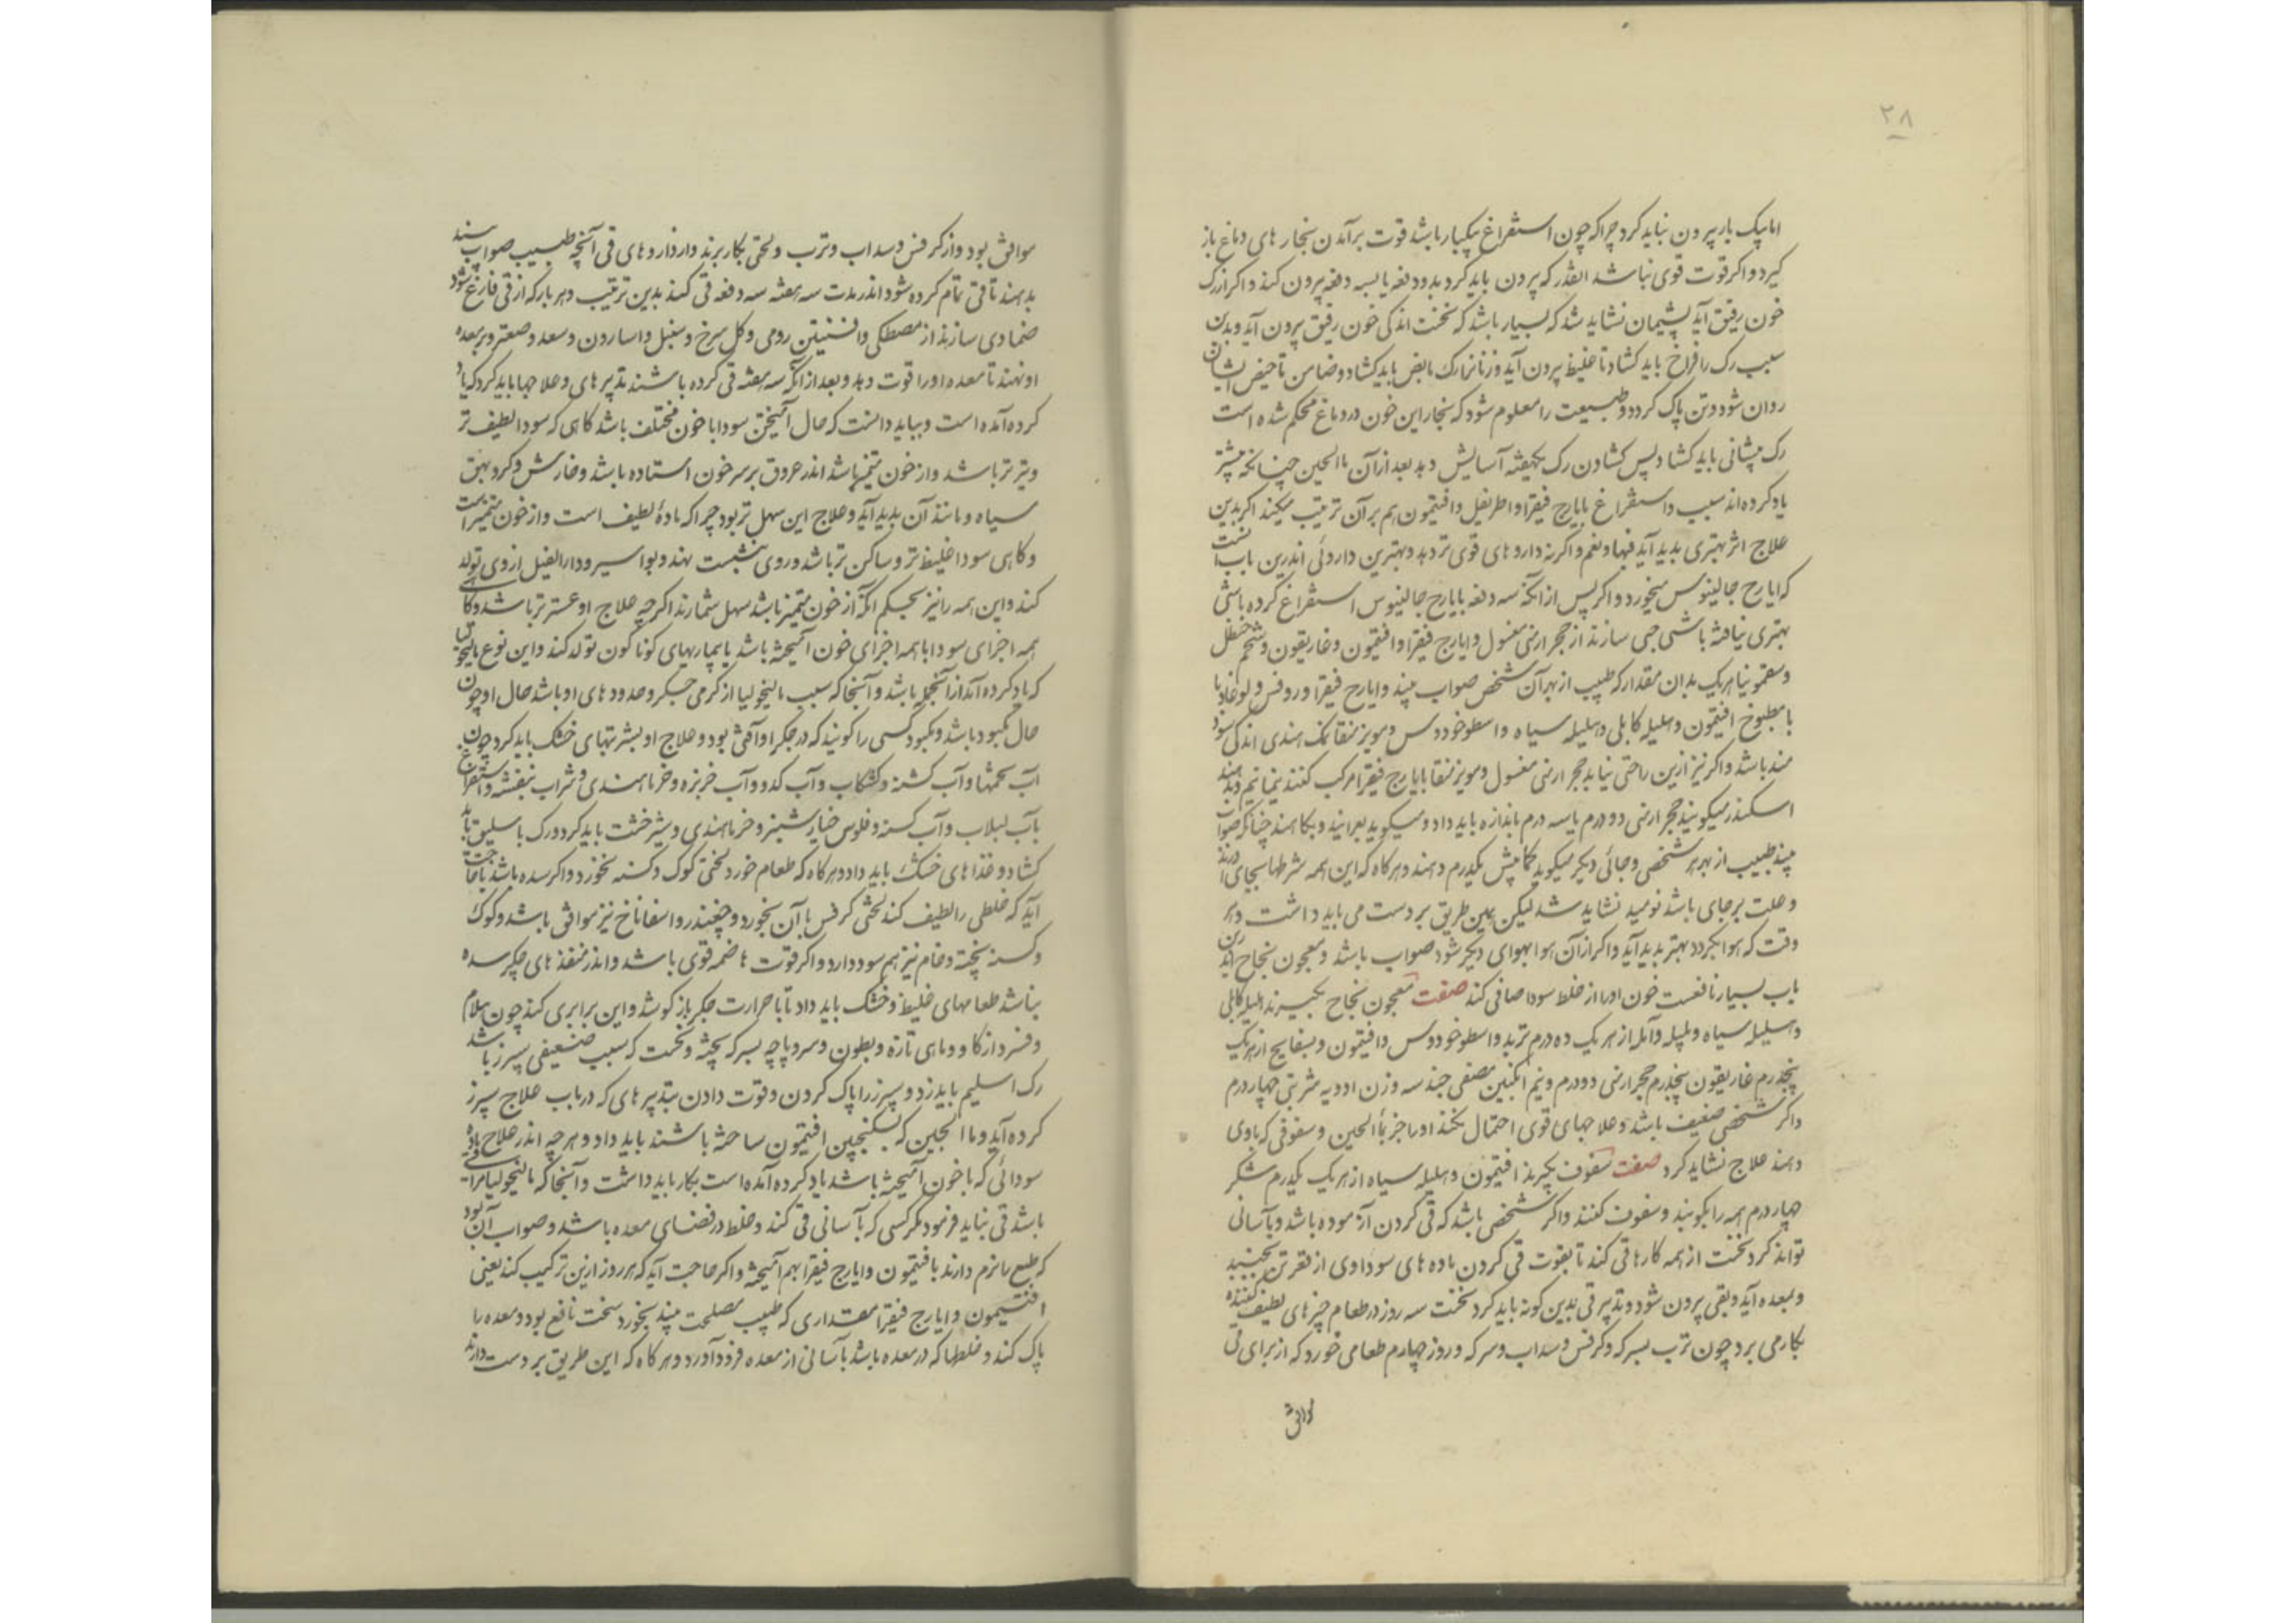 ۲۸
اما بیک بار بیرون نباید کرد چرا که چون استفراغ بیکبار باشد قوت برآمدن بخار های دماغ باز
کیرد و اکر قوت قوی نباشد القدر که بیرون باید کرد بدو دفعه یا بسه دفعه بیرون کند و اکر از رک
خون رقیق آید پشیمان نشاید شد که بسیار باشد که نخست اندکی خون رقیق بیرون آید و بدین
سبب رک را فراخ باید کشاد تا غلیظ بیرون آید و زنانرا رک مابض باید کشاد و صافن تا حیض ایشان
روان شود و تن پاک کردد و طبیعت را معلوم شود که بخار این خون در دماغ محکم شده است
رک پیشانی باید کشاد و پس کشادن رک یکهفته آسایش دهد بعد از آن ماالجبن چنانکه پیشتر
یاد کرده اند سبب و استفراغ بایارج فیقرا و اطریفل و افتیمون هم بر آن ترتیب میکند اکر بدین
علاج اثر بهتری پدید آید فبها و نعم و اکر نه دارو های قوی تر دهد و بهترین داروئی اندرین باب آنست
که ایارج جالینوس بخورد و اکر پس از آنکه سه دفعه بایارج جالینوس استفراغ کرده باشی
بهتری نیافته باشی حبی سازند از حجر ارمنی مغسول و ایارج فیقرا و افتیمون و غاریقون و شحم حنظل
و سقمونیا هریک بدان مقدار که طبیب از بهر آن شخص صواب بیند و ایارج فیقرا و روفس و لوغاذیا
با مطبوخ افتیمون و هلیله کابلی و هلیله سیاه و اسطوخودوس و مویز منقا نمک هندی اندکی سود
مند باشد و اکر نیز ازین راحتی نیابد حجر ارمنی مغسول و مویز منقا بایارج فیقرا مرکب کنند نیمانیم و بدهند
اسکندر میکوید حجر ارمنی دو درم یا سه درم باندازه باید داد و میکوید بفزانید و بکاهند چنانکه صواب
بیند طبیب از بهر هر شخصی و جائی دیکر میکوید کمابیش یکدرم دهند و هر کاه که این همه شرطها بجای آرند
و علت بر جای باشد نومید نشاید شد لیکن همین طریق بر دست می باید داشت و هر
وقت که هوا بکردد بهتر پدید آید و اکر از آن هوا بهوای دیکر شود صواب باشد و معجون نجاح اندرین
باب بسیار نافعست خون او را از خلط سودا صافی کند صفت معجون نجاح بکیرند هلیله کابلی
و هلیله سیاه و بلیله و آمله از هر یک ده درم تربد و اسطوخودوس و افتیمون و بسفایج از هریک
پنجدرم غاریقون پنجدرم حجر ارمنی دو درم و نیم انکبین مصفی چند سه وزن ادویه شربتی چهار درم
و اکر شخصی ضعیف باشد و علاجهای قوی احتمال نکند او را جز بماالجبن و سفوفی که با وی
دهند علاج نشاید کرد صفت سفوف بکیرند افتیمون و هلیله سیاه از هر یک یکدرم شکر
چهار درم همه را بکوبند و سفوف کنند و اکر شخصی باشد که قی کردن آزموده باشد و بآسانی
تواند کرد نخست از همه کارها قی کند تا بقوت قی کردن ماده های سوداوی از قعر تن بجنبد
و بمعده آید و بقی بیرون شود و تدبیر قی بدین کونه باید کرد نخست سه روز در طعام چیز های لطیف کننده
بکار می برد چون ترب بسرکه و کرفس و سداب و سرکه و روز چهارم طعامی خورد که از برای قی
موافق
موافق بود و از کرفس و سداب و ترب و لختی بکار برند و از دارو های قی آنچه طبیب صواب بیند
بدهند تا قی تمام کرده شود اندر مدت سه هفته سه دفعه قی کند بدین ترتیب و هر بار که از قی فارغ شود
ضمادی سازند از مصطکی و افسنتین رومی و کل سرخ و سنبل و اسارون و سعد و صعتر و بر معده
او نهند تا معده او را قوت دهد و بعد از آنکه سه هفته قی کرده باشند تدبیر های و علاجها باید کرد که یاد
کرده آمده است و بباید دانست که حال آمیختن سودا با خون مختلف باشد کاهی که سودا لطیف تر
و تیز تر باشد و از خون متمیز باشد اندر عروق بر سر خون استاده باشد و خارش و کر و بهق
سیاه و مانند آن پدید آید و علاج این سهل تر بود چرا که مادهٔ لطیف است و از خون متمیز است
و کاهی سودا غلیظ تر و ساکن تر باشد و روی بنشست نهد و بواسیر و دارالفیل از وی تولد
کند و این همه را نیز بحکم آنکه از خون متمیز باشد سهل شمارند اکر چه علاج او عستر تر باشد و کاهی
همه اجزای سودا با همه اجزای خون آمیخته باشد یا بیماریهای کوناکون تولد کند و این نوع مالیخولیا
که یاد کرده آمد از آنجمله باشد و آنجا که سبب مالیخولیا از کرمی جکر و حدود های او باشد حال او چون
حال مکبود باشد و مکبود کسی را کویند که در جکر او آفتی بود و علاج او بشربتهای خنک باید کرد چون
آب تخمها و آب کسنه و کشکاب و آب کدو و آب خربزه و خرما هندی و شراب بنفشه و استفراغ
بآب لبلاب و آب کسنه و فلوس خیار شنبر و خرما هندی و شیرخشت باید کرد و رک باسلیق باید
کشاد و غذا های خنک باید داد و هر کاه که طعام خورد لختی کوک و کسنه بخورد و اکر سده باشد یا حاجت
آید که خلطی را لطیف کند لختی کرفس با آن بخورد و چغندر و اسفاناخ نیز موافق باشد و کوک
و کسنه پخته و خام نیز هم سود دارد و اکر قوت هاضمه قوی باشد و اندر منفذ های جکر سده
نباشد طعامهای غلیظ و خنک باید داد تا با حرارت جکر باز کوشد و این برابری کند چون هلام
و قرید از کاو و ماهی تازه و بطون و سر و پاچه بسرکه پخته و نخست که سبب ضعیفی سپرز باشد
رک اسلیم باید زد و سپرز را پاک کردن و قوت دادن بتدبیر های که در باب علاج سپرز
کرده آید و ماالجبن که بسکنجبین افتیمون ساخته باشند باید داد و هر چه اندر علاج ماده
سودائی که با خون آمیخته باشد یاد کرده آمده است بکار باید داشت و آنجا که مالیخولیا مراقی
باشد قی نباید فرمود مکر کسی که بآسانی قی کند و خلط در فضای معده باشد و صواب آن بود
که طبع را نرم دارند بافتیمون و ایارج فیقرا بهم آمیخته و اکر حاجت آید که هر روز ازین ترکیب کند یعنی
افتیمون و ایارج فیقرا مقداری که طبیب مصلحت بیند بخورد سخت نافع بود و معده را
پاک کند و خلطها که در معده باشد بآسانی از معده فرود آورد و هر کاه که این طریق بر دست دارند